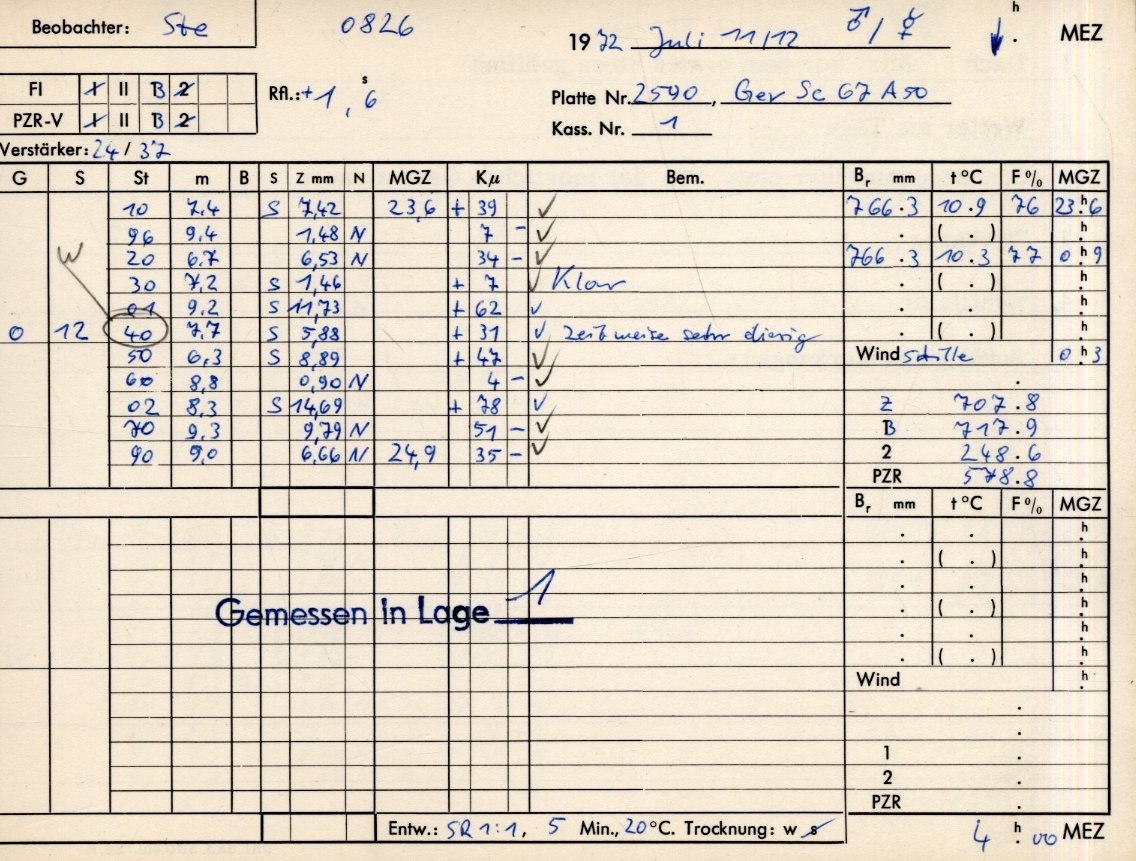 Beobachter: Ste
0826
1972 Juli 11/12 ♂/☿ ↓ h . MEZ
FI I II B 2
PZR-V I II B 2
Rfl.: +1,s6
Platte Nr. 2590, Gev Sc 67 A50
Kass. Nr. 1
Verstärker: 24/37
G S St m B S Z mm N MGZ Kμ Bem. Br mm t °C F % MGZ
10 7,4 S 7,42 23,6 + 39 ✓ 766.3 10.9 76 23h6
96 9,4 1,48 N 7 - ✓ . ( . ) h.
20 6,7 6,53 N 34 - ✓ 766.3 10.3 77 0h9
W
30 7,2 S 1,46 + 7 ✓ Klar . ( . ) h.
01 9,2 S 11,73 + 62 ✓ . . h.
0 12 40 7,7 S 5,88 + 31 ✓ zeitweise sehr diesig . ( . ) h.
50 6,3 S 8,89 + 47 ✓ Wind stille 0h3
60 8,8 0,90 N 4 - ✓ .
02 8,3 S 14,69 + 78 ✓ Z 707.8
70 9,3 9,79 N 51 - ✓ B 717.9
90 9,0 6,66 N 24,9 35 - ✓ 2 248.6
PZR 578.8
Br mm t °C F % MGZ
. . h.
. ( . ) h.
. . h.
. ( . ) h.
. . h.
. ( . ) h.
Gemessen in Lage 1
Wind h.
.
.
1 .
2 .
PZR .
Entw.: SR 1:1, 5 Min., 20 °C. Trocknung: w s
4 h. 00 MEZ